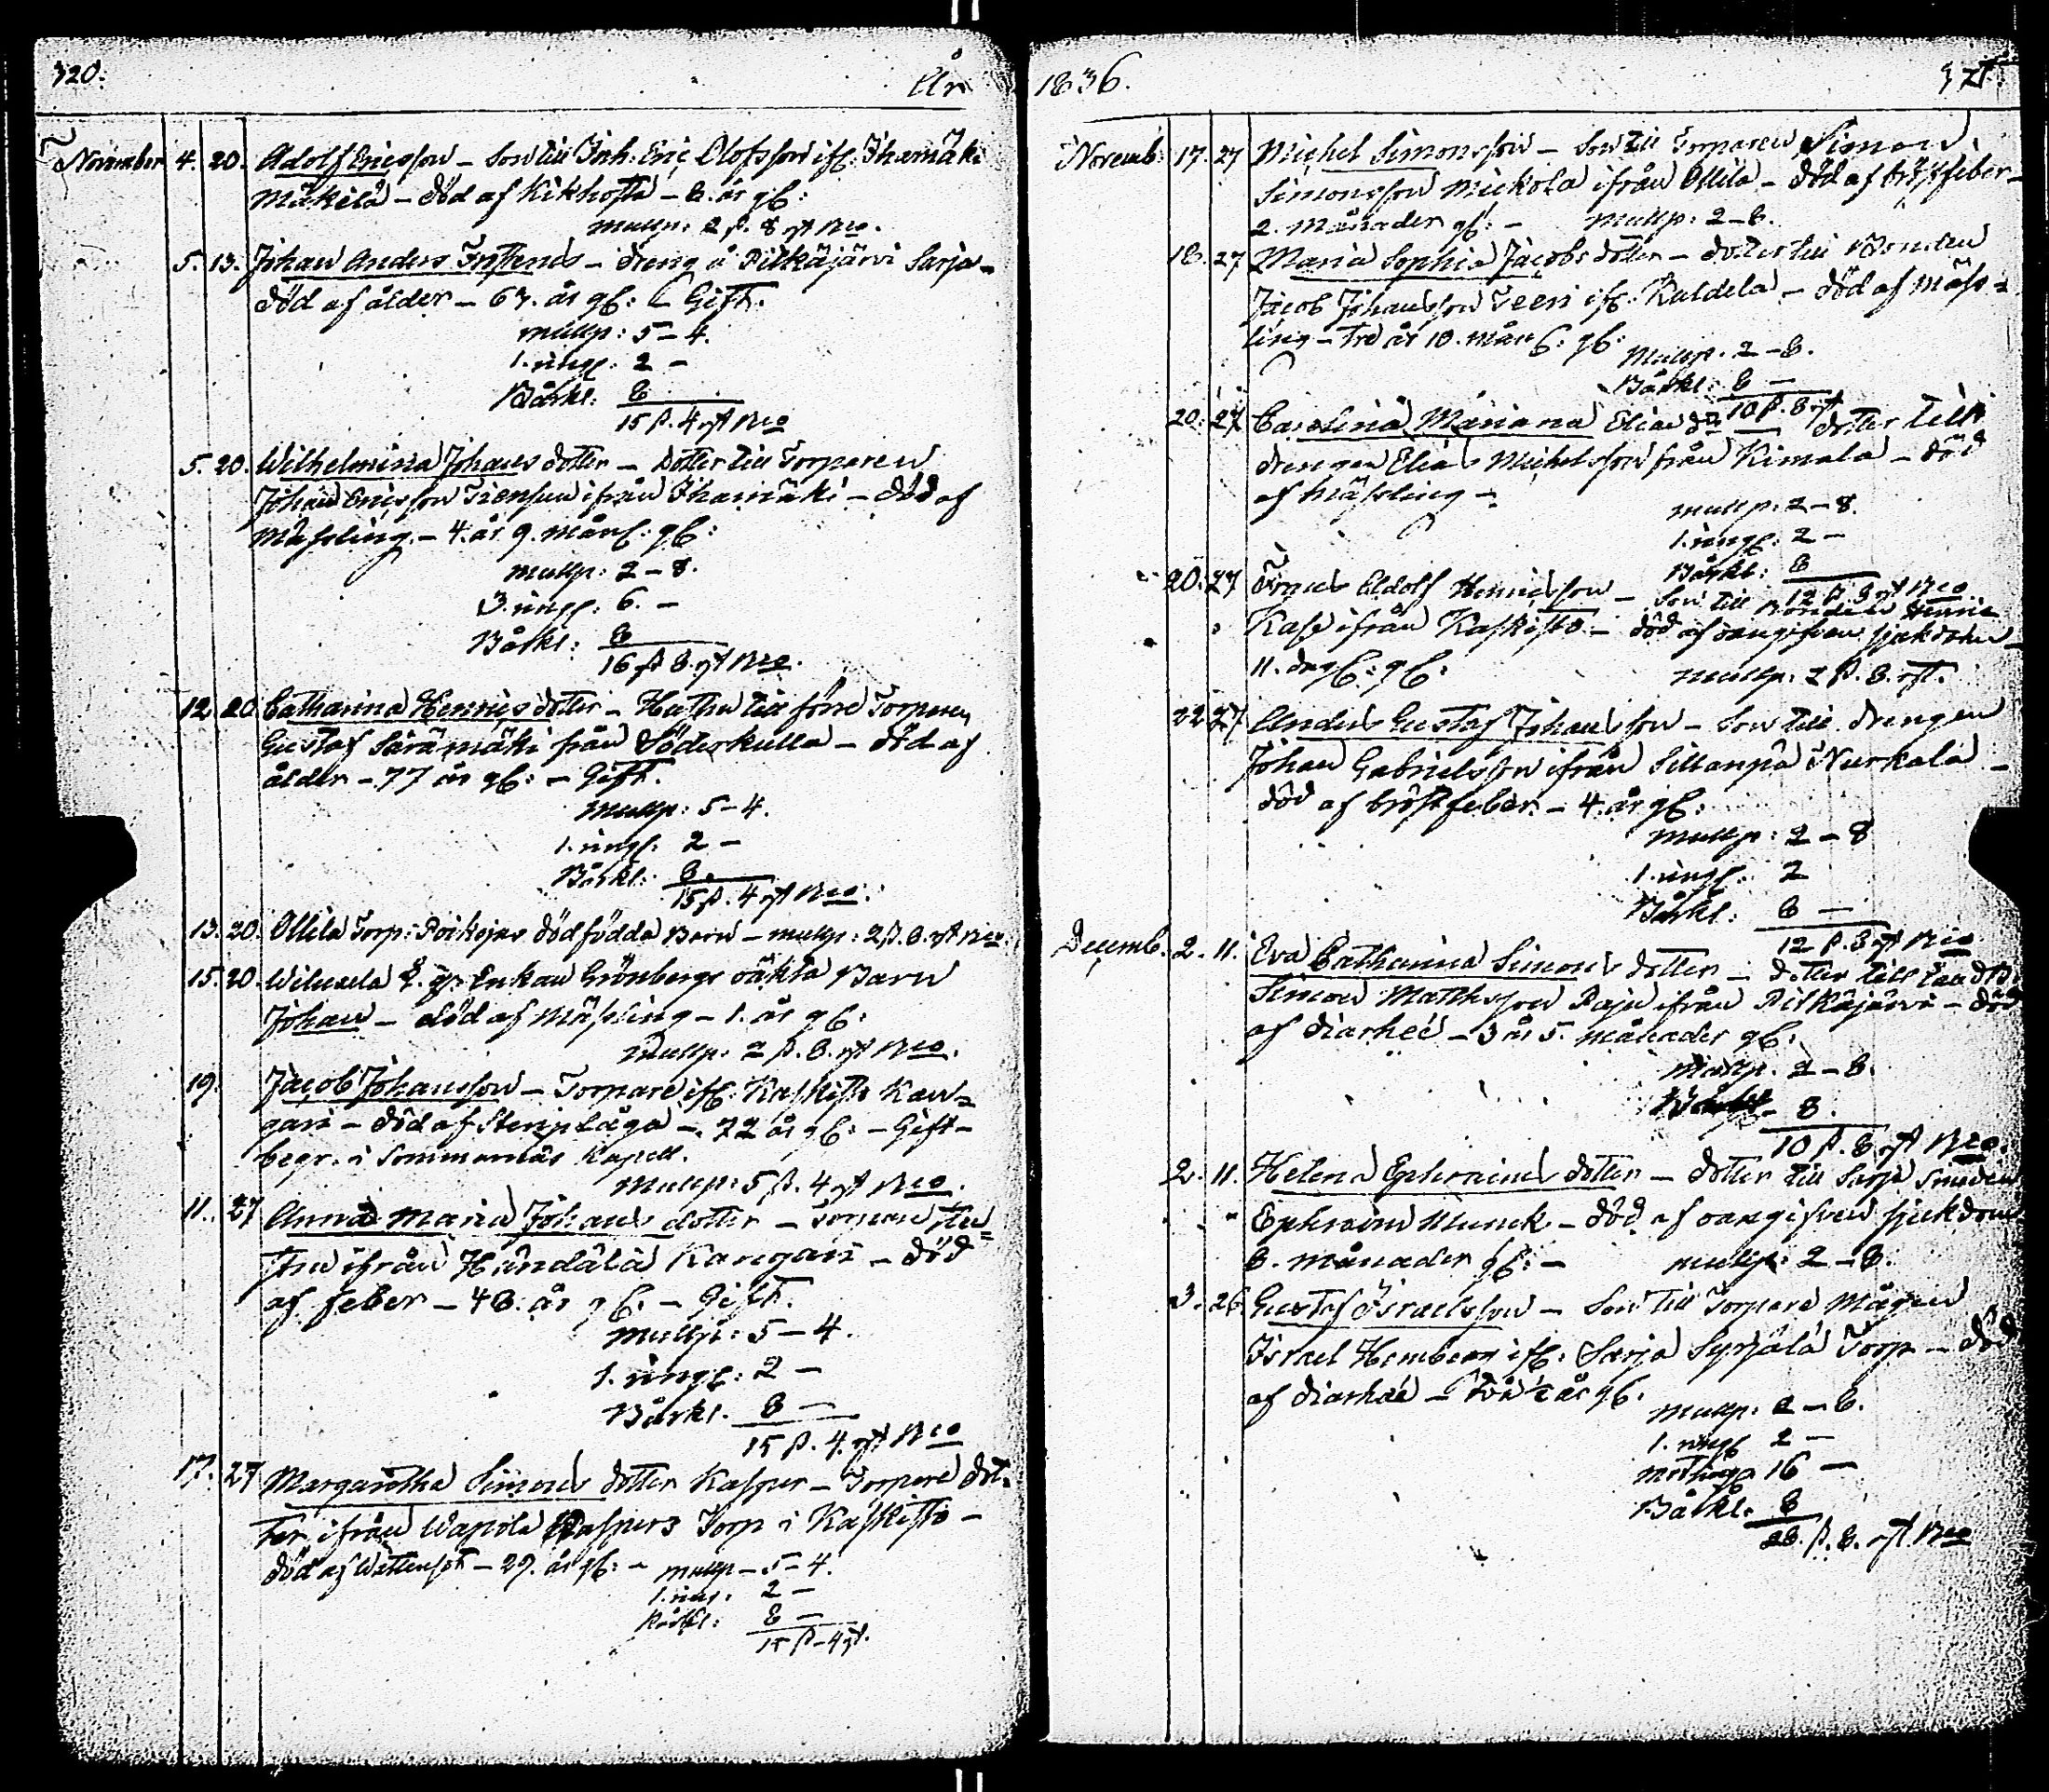 320. År
November 4. 20. Adolf Ericsson – Son till Inh. Eric Olofsson ifr: Ihamäki
Mäkilä – död af Kikhosta – 8. år gl:
mullp: 2 ß. 8 rst Bco.
5. 13. Johan Anders – dreng å Pitkäjärvi Sarja –
död af ålder – 63. år gl: Gift.
mullp: 5 – 4.
1. ringn: 2 –
Bårkl: 8
15 ß. 4 rst Bco
5. 20. Wilhelmina Johans dotter – Dotter till Torparen
Johan Ericsson ifrån Ihamäki – död af
Mässling. – 4. år 9. mån: gl:
mullp: 2 – 8.
3. ringn: 6. –
Bårkl: 8
16 ß 8 rst Bco.
12. 20. Catharina Henrics dotter – Hustru till förre Torparen
Gustaf Särämäki från Söderkulla – död af
ålder – 77 år gl: – Gift.
mullp: 5 – 4.
1. ringn: 2 –
Bårkl: 8.
15 ß. 4 rst Bco.
13. 20. Ollila Torp: Poikojas dödfödda Barn – mullp: 2 ß. 8. rst Bco.
15. 20. Enkan Grönbergs oäkta Barn
Johan – död af Mässling – 1. år gl:
mullp: 2 ß. 8. rst Bco.
19. Jacob Johansson – Torpare ifr: Kaskisto Kan=
gari – död af Stenplåga – 72 år gl: – Gift –
begr. i Sommarnäs Kapell.
Mullp: 5 ß. 4 rst Bco.
11. 27 Anna Maria Johans dotter – Torpare Hu=
stru ifrån Händälä Kangari – död
af feber – 48. år gl. – Gift.
Mullp: 5 – 4.
1. ringn: 2 –
Bårkl. 8 –
15 ß. 4. rst Bco
17. 27 Margaretha Simons dotter Kasper – Torpare dot=
ter ifrån Wapola Kaspers Torp i Kaskisto –
död af Wattensot – 29. år gl: – mullp – 5 – 4.
1. ring: 2 –
Bårkl: 8 –
15 ß – 4 rst.
1836. 321.
Novemb: 17. 27 Michel Simonsson – Son till Torparen Simon
Simonsson Mickola ifrån Ollila – död af bröstfeber –
2. Månader gl: – Mullp: 2 – 8.
18. 27 Maria Sophia Jacobs dotter – dotter till Bonden
Jacob Johansson Teeri ifr: Kuldela – död af mäss=
ling – Tre år 10. mån: gl:
Mullp. 2 – 8.
Bårkl: 8 –
10 ß. 8 rst
20. 27 Carolina Mariana Elias dr dotter till
drengen Elias Michelsson från Kimala – död
af Mässling –
mullp: 2 – 8.
1. ringn: 2 –
Bårkl: 8
12 ß. 8 rst Bco
20. 27 Frans Adolf Henricsson – Son till Bonden Henric
Kasp ifrån Kaskisto – död af oangifven sjukdom –
11. dagr: gl: mullp: 2 ß. 8. rst.
22 27 Anders Gustaf Johansson – Son till drengen
Johan Gabrielsson ifrån Sillanpä Nurkala –
död af bröstfeber. – 4. år gl:
mullp: 2 – 8
1. ringn: 2
Bårkl: 8 –
12 ß. 8 rst Bco
Decemb. 2. 11. Eva Catharina Simons dotter – dotter till
Simon Matthsson Paju ifrån Pitkäjärvi – död
af diarheé – 3 år 5. månader gl:
Mullp. 2 – 8.
8.
10 ß. 8 rst Bco.
2. 11. Helena Ephraims dotter – dotter till Sarja Smeden
Ephraim Munck – död af oangifven sjukdom
8. månader gl: – mullp: 2 – 8.
3. 26. Gustaf Israelsson – Son till Torpare Mågen
Israel Hemberg ifr: Sarja Syrjälä Torp – död
af diarheé – två ½ år gl.
Mullp: 2 – 8.
1. ringn 2 –
16 –
Bårkl: 8
28 ß. 8. rst Bco